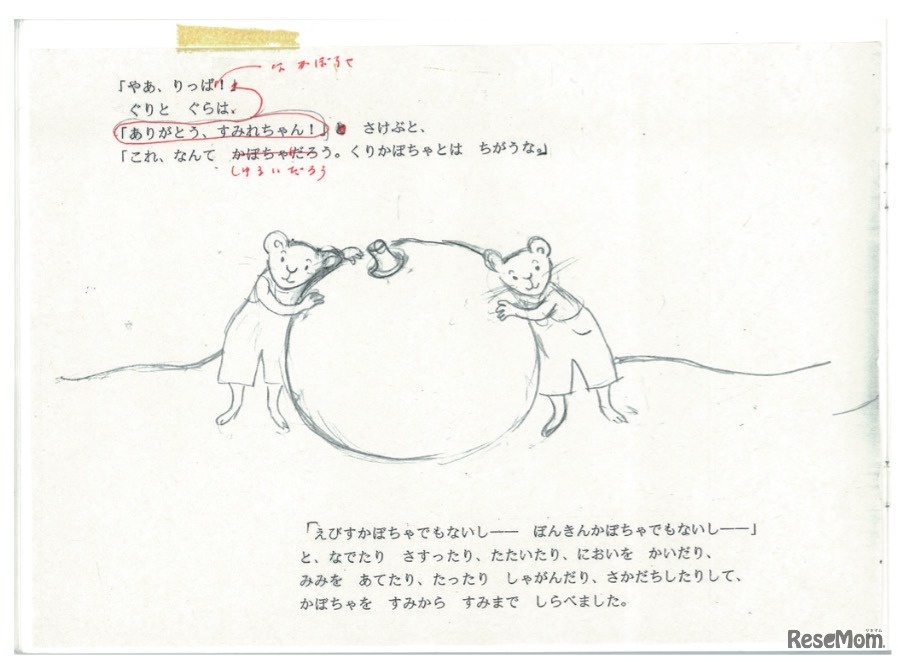 なかぼちゃ
「やあ、りっぱ！」
ぐりと　ぐらは、
「ありがとう、すみれちゃん！」と　さけぶと、
「これ、なんて　かぼちゃだろう。くりかぼちゃとは　ちがうな。」
しゅるいだろう
「えびすかぼちゃでもないし――　ぽんきんかぼちゃでもないし――」
と、なでたり　さすったり、たたいたり、においを　かいだり、
みみを　あてたり、たったり　しゃがんだり、さかだちしたりして、
かぼちゃを　すみから　すみまで　しらべました。
リセマム
ReseMom.